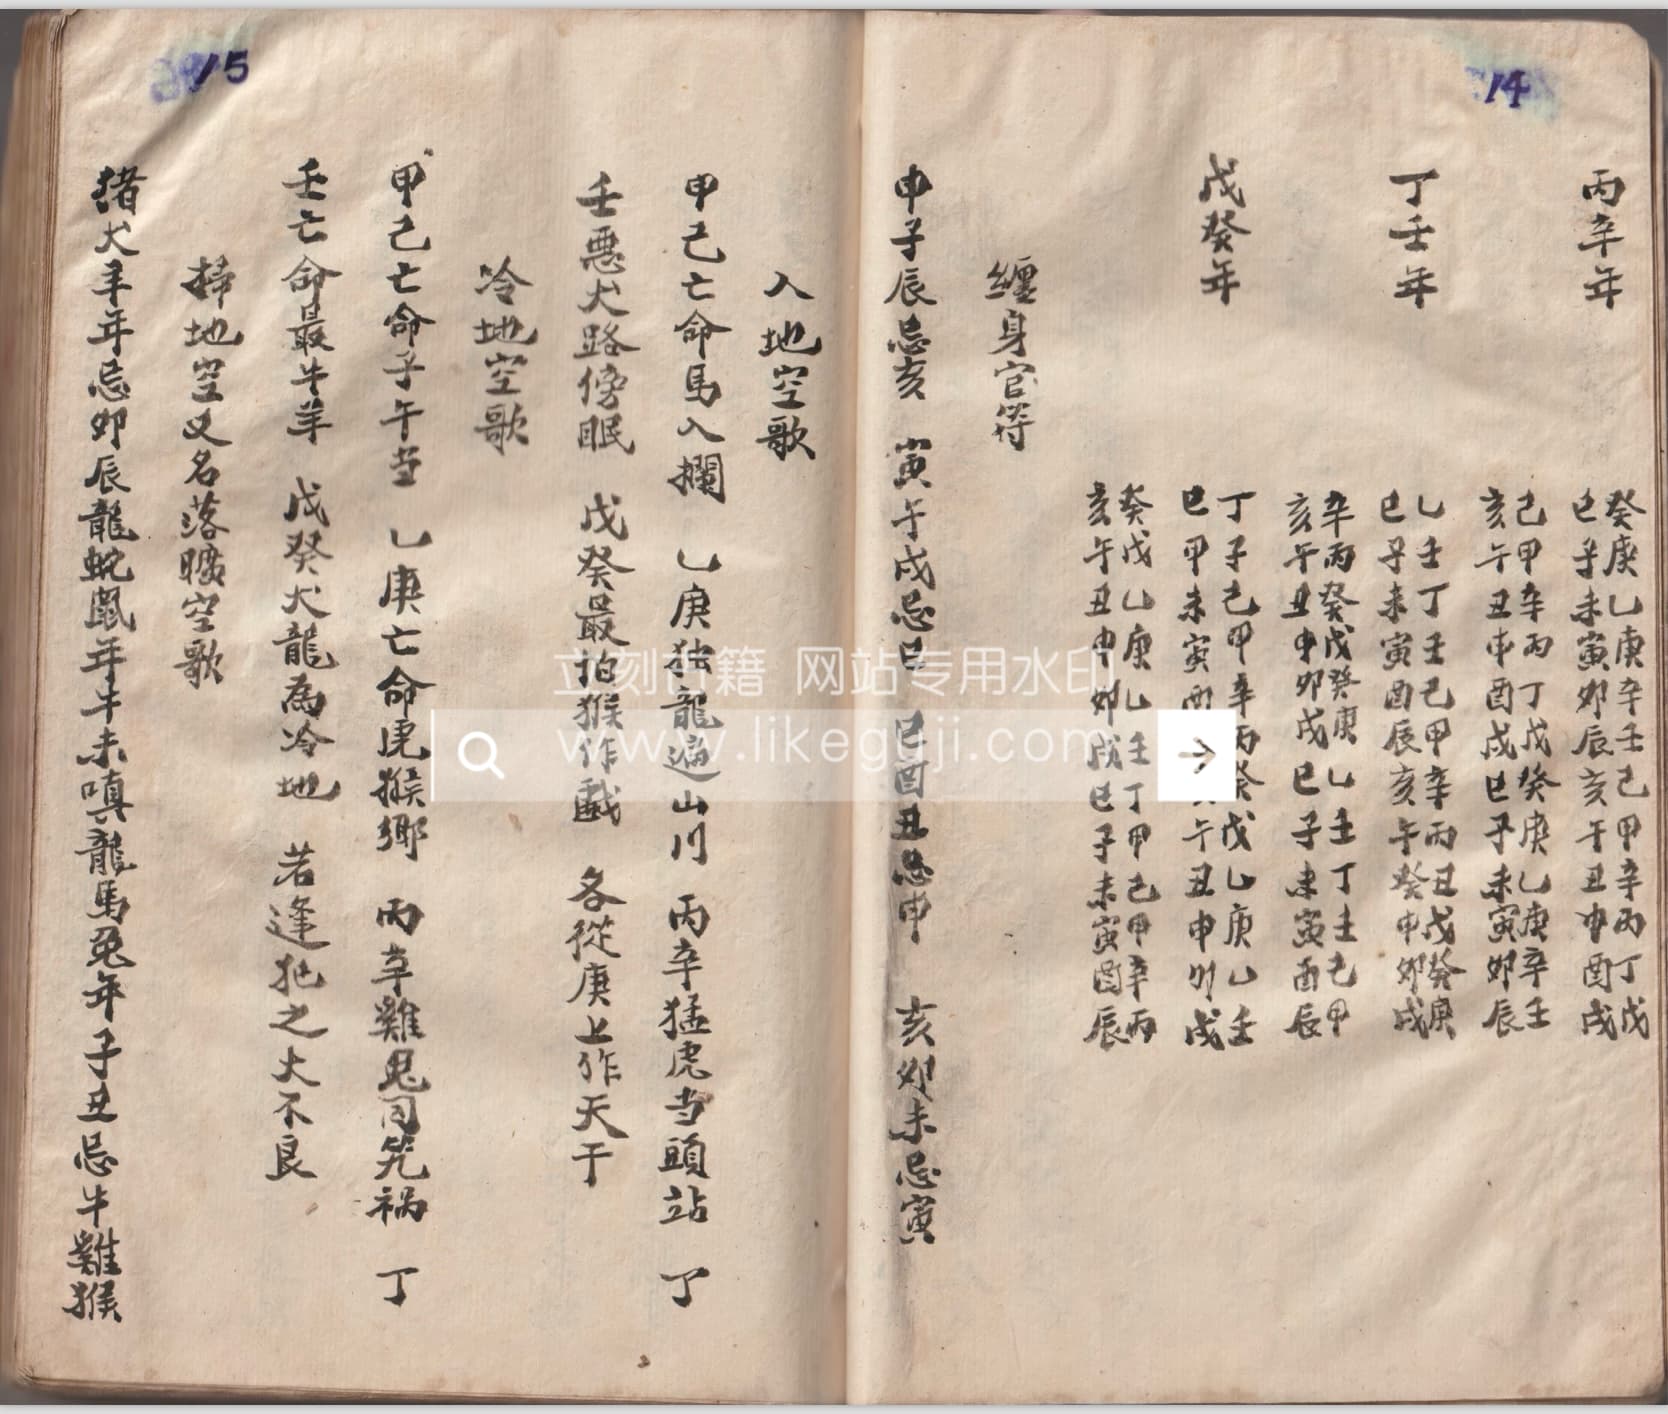 14
丙辛年
癸庚乙庚辛壬己甲辛丙丁戊
巳子未寅卯辰亥午丑申酉戌
己甲辛丙丁戊癸庚乙庚辛壬
亥午丑申酉戌巳子未寅卯辰
丁壬年
乙壬丁壬己甲辛丙丑戊癸庚
巳子未寅酉辰亥午癸申卯戌
辛丙癸戊癸庚乙壬丁壬己甲
亥午丑申卯戌巳子未寅酉辰
戊癸年
丁子己甲辛丙癸戊乙庚乙壬
巳甲未寅酉 午丑申卯戌
癸戊乙庚乙壬丁甲己甲辛丙
亥午丑申卯戌巳子未寅酉辰
纏身官符
申子辰忌亥 寅午戌忌巳 巳酉丑忌申 亥卯未忌寅
15
入地空歌
甲己亡命馬入欄 乙庚独龍遍山川 丙辛猛虎当頭站 丁
壬惡犬路傍眠 戊癸最怕猴作戲 各從庚上作天干
冷地空歌
甲己亡命子午当 乙庚亡命虎猴鄉 丙辛雞兔同咒禍 丁
壬亡命最牛羊 戊癸犬龍為冷地 若逢犯之大不良
掃地空又名落曠空歌
猪犬羊年忌卯辰龍蛇鼠年牛未嗔龍馬兔年子丑忌牛雞猴
立刻古籍 网站专用水印
www.likeguji.com